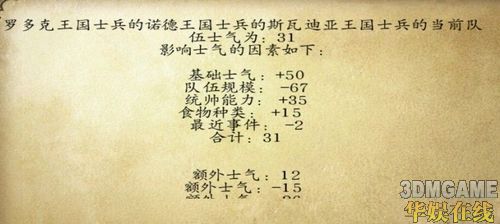 罗多克王国士兵的诺德王国士兵的斯瓦迪亚王国士兵的当前队
伍士气为: 31
影响士气的因素如下:
基础士气: +50
队伍规模: -67
统帅能力: +35
食物种类: +15
最近事件: -2
合计: 31
额外士气: 12
额外士气: -15
3DMGAME
华娱在线